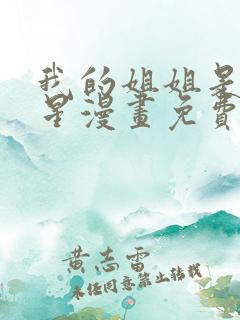 我的姐姐是
星漫畫免費
黄志雷
未经同意禁止转载